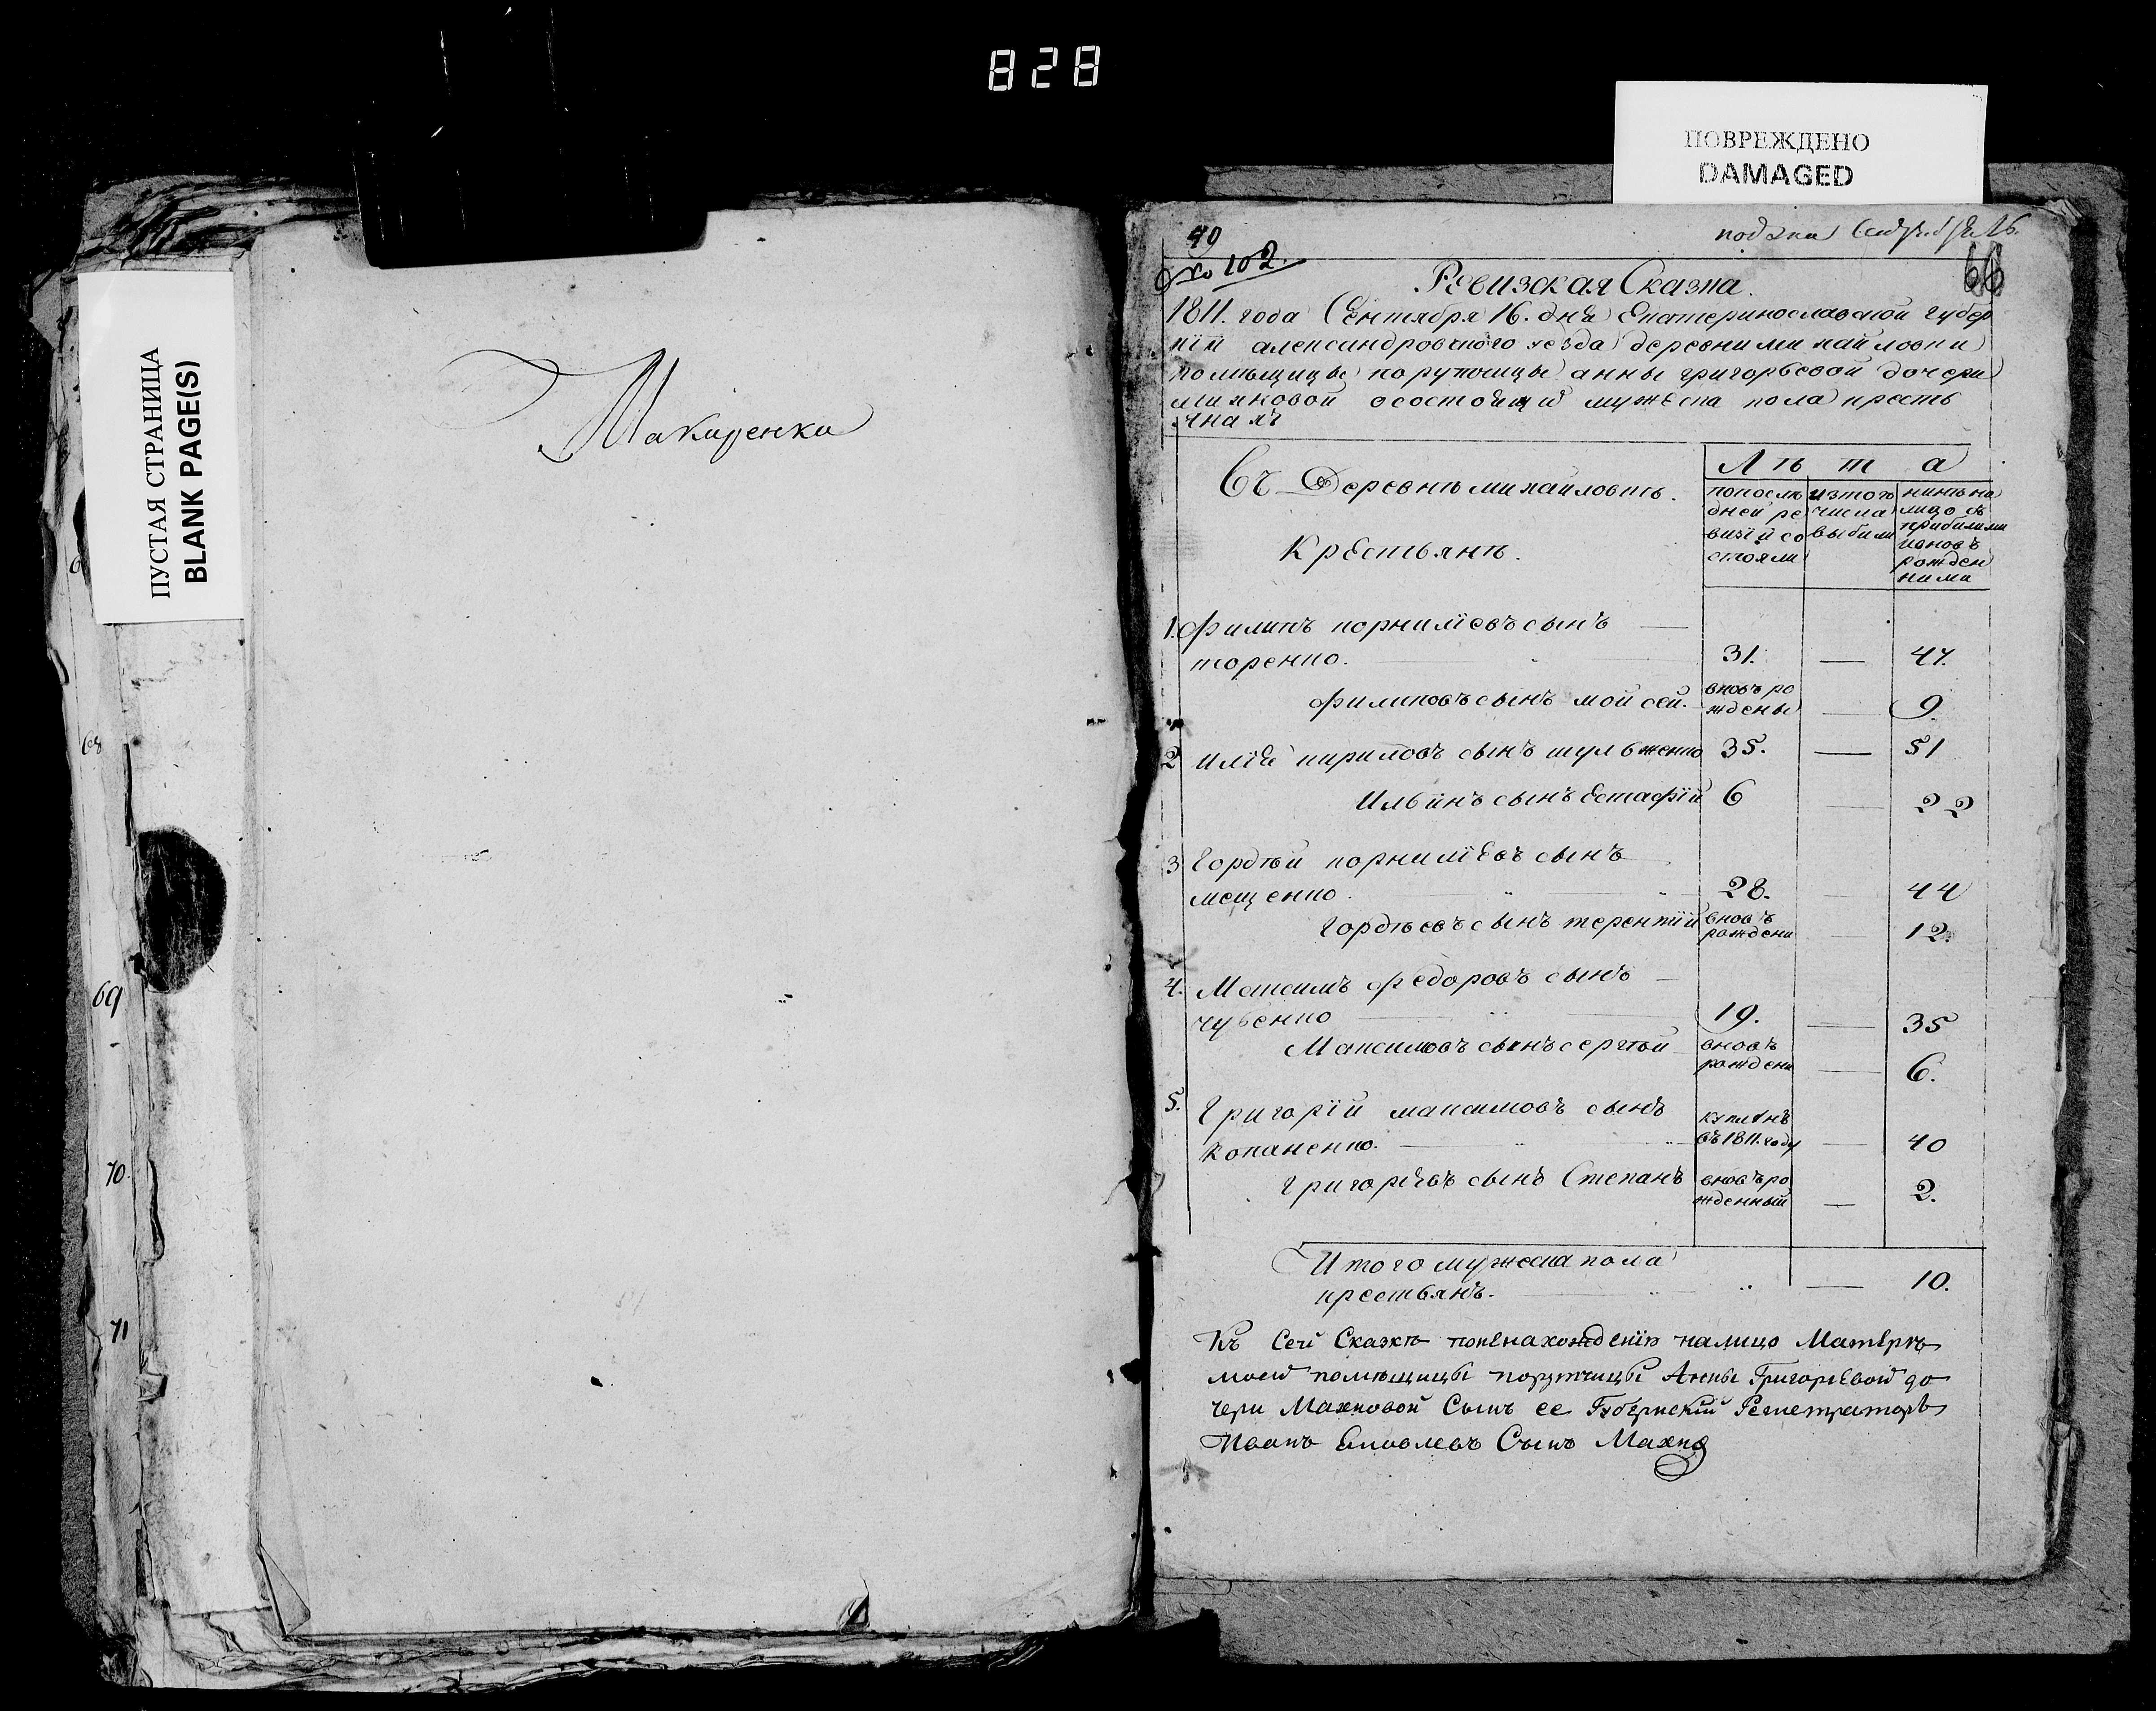 828
ПОВРЕЖДЕНО
DAMAGED
ПУСТАЯ СТРАНИЦА
BLANK PAGE(S)
68
69
70.
71
Макаренка
90
№ 102.
подана Сентября 16.
66
Ревизская Сказка.
1811. года Сентября 16. дня Екатеринославской губер
нїи александровского уезда деревни михайловки
помѣщицы порутчицы анны григорьевой дочери
махновой осостоящи мужеска пола кресть
янахъ
Лѣта
Въ Деревнѣ михайловкѣ.
Крестьянъ.
попослѣ
дней ре
визїи со
стояли
изтого
числа
выбыли
нинѣ на
лицо съ
прибилими
ивновъ
рожден
ними
1. Филипъ корнилїевъ сынъ
торенко. 31. — 47.
филиповъ сынъ мойсей. вновъ ро
ждены — 9.
2 илїя кириловъ сынъ шульженко 35. — 51
Ильинъ сынъ Естафїй 6 — 22
3 Гордѣй корнилїевъ сынъ
мещенко. 28. — 44
Гордѣевъ сынъ терентїй вновъ
рождени — 12.
4. Максимъ федоровъ сынъ —
чубенко 19. — 35
Максимовъ сынъ сергѣй вновъ
рождени — 6.
5. Григорїй максимовъ сынъ
Копаненко. купленъ
въ 1811. году — 40
Григорїевъ сынъ Степанъ вновъ ро
жденный — 2.
Итого мужеска пола
крестьянъ. — 10.
Къ Сей Сказкѣ поненахожденїю налицо Матери
моей помѣщицы порутчицы Анны Григорьевой до
чери Махновой Сынъ ее Губернскїй Регистраторъ
Иванъ Яковлевъ Сынъ Махно